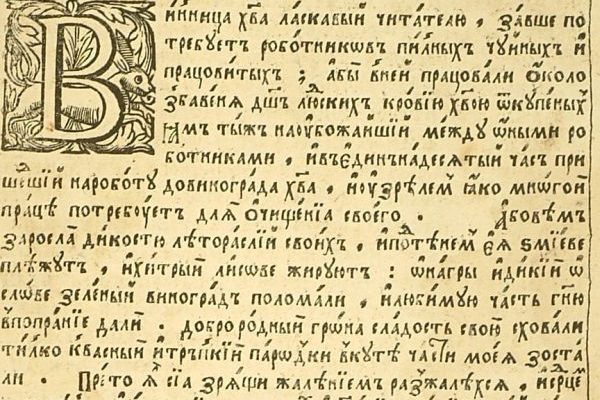 Винница хв҃а ласкавый читателю , завше по
требуетъ роботникѡвъ пилных чуйных и
працовитых ; абы вней працовали ѡколо
збавенꙗ дш҃ъ людских кровїю хв҃ою ѿкупеных
Ꙗмъ тыж наоубожайшїй между ѡными ро
ботниками , ивъединънадесятый часъ при
шедшїй нароботу довинограда хв҃а , иоузрѣлем ꙗко многой
праце потребоуетъ длѧ ѡчищенїа своего . Абовѣмъ
заросла дикостю лѣтораслїй своих , ипотѣнием еѧ ѕмїеве
плѣжут , ихитрый лисове жируют : ѡнагры идикїй ѡ
слове зеленый виноград поломали , илюбимую часть гною
впопранїе дали . доброродный грона сладость свою сховали
тилко квасный итръпкїй пародки вкутѣ части моеѧ зоста
ли . Прето ꙗ сїа зрѧщи жалѣнїем разжалѣхсѧ , исрцем